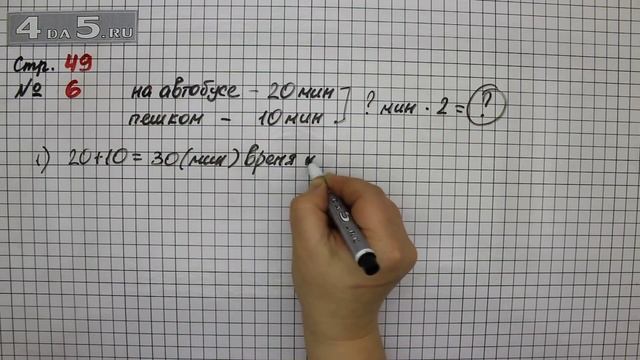 4DA5.RU
Стр. 49
№ 6 на автобусе - 20 мин
пешком - 10 мин ] ? мин · 2 = ?
1) 20+10=30(мин) время
4 DA 5.RU